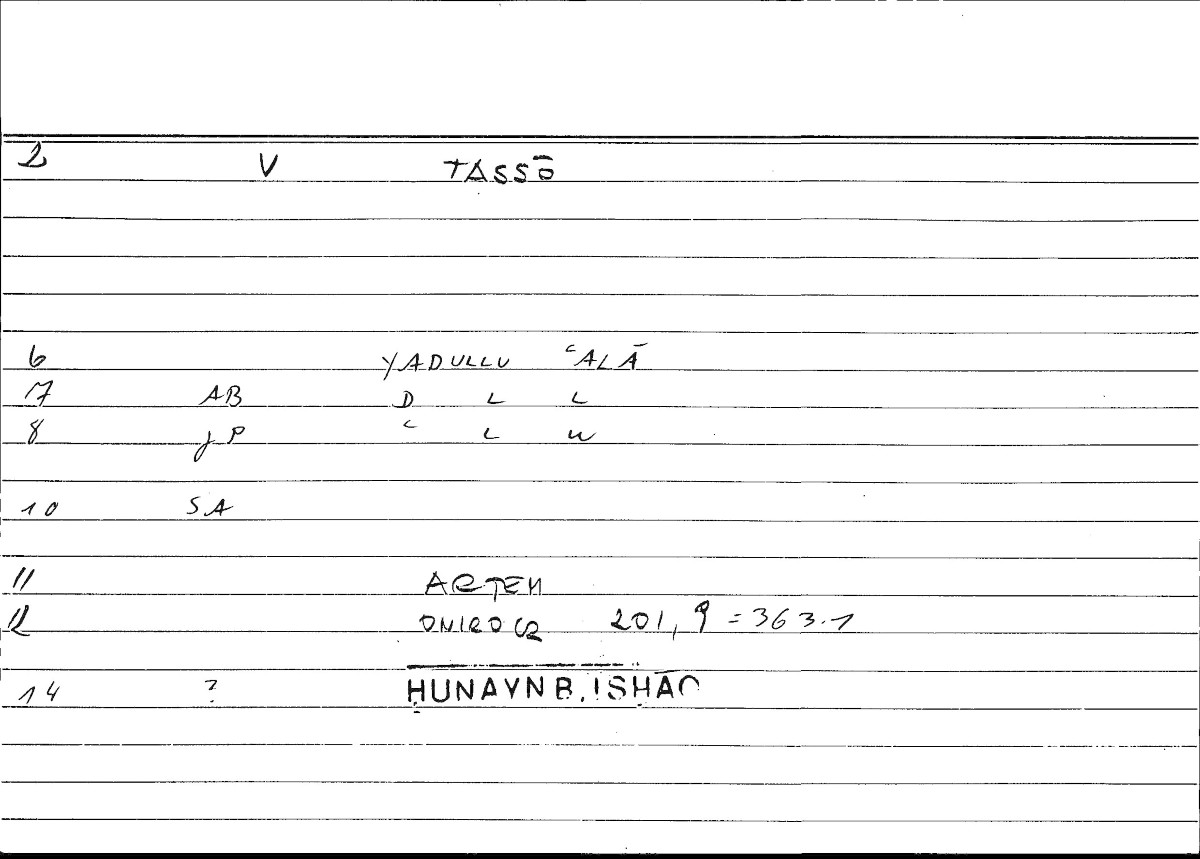 2 V TASSŌ
6 YADULLU ʿALĀ
7 AB D L L
8 JP ʿ L W
10 SA
11 ARTEM
12 ONIROCR 201, 9 = 363.1
14 ? ḤUNAYN B. ISḤĀQ